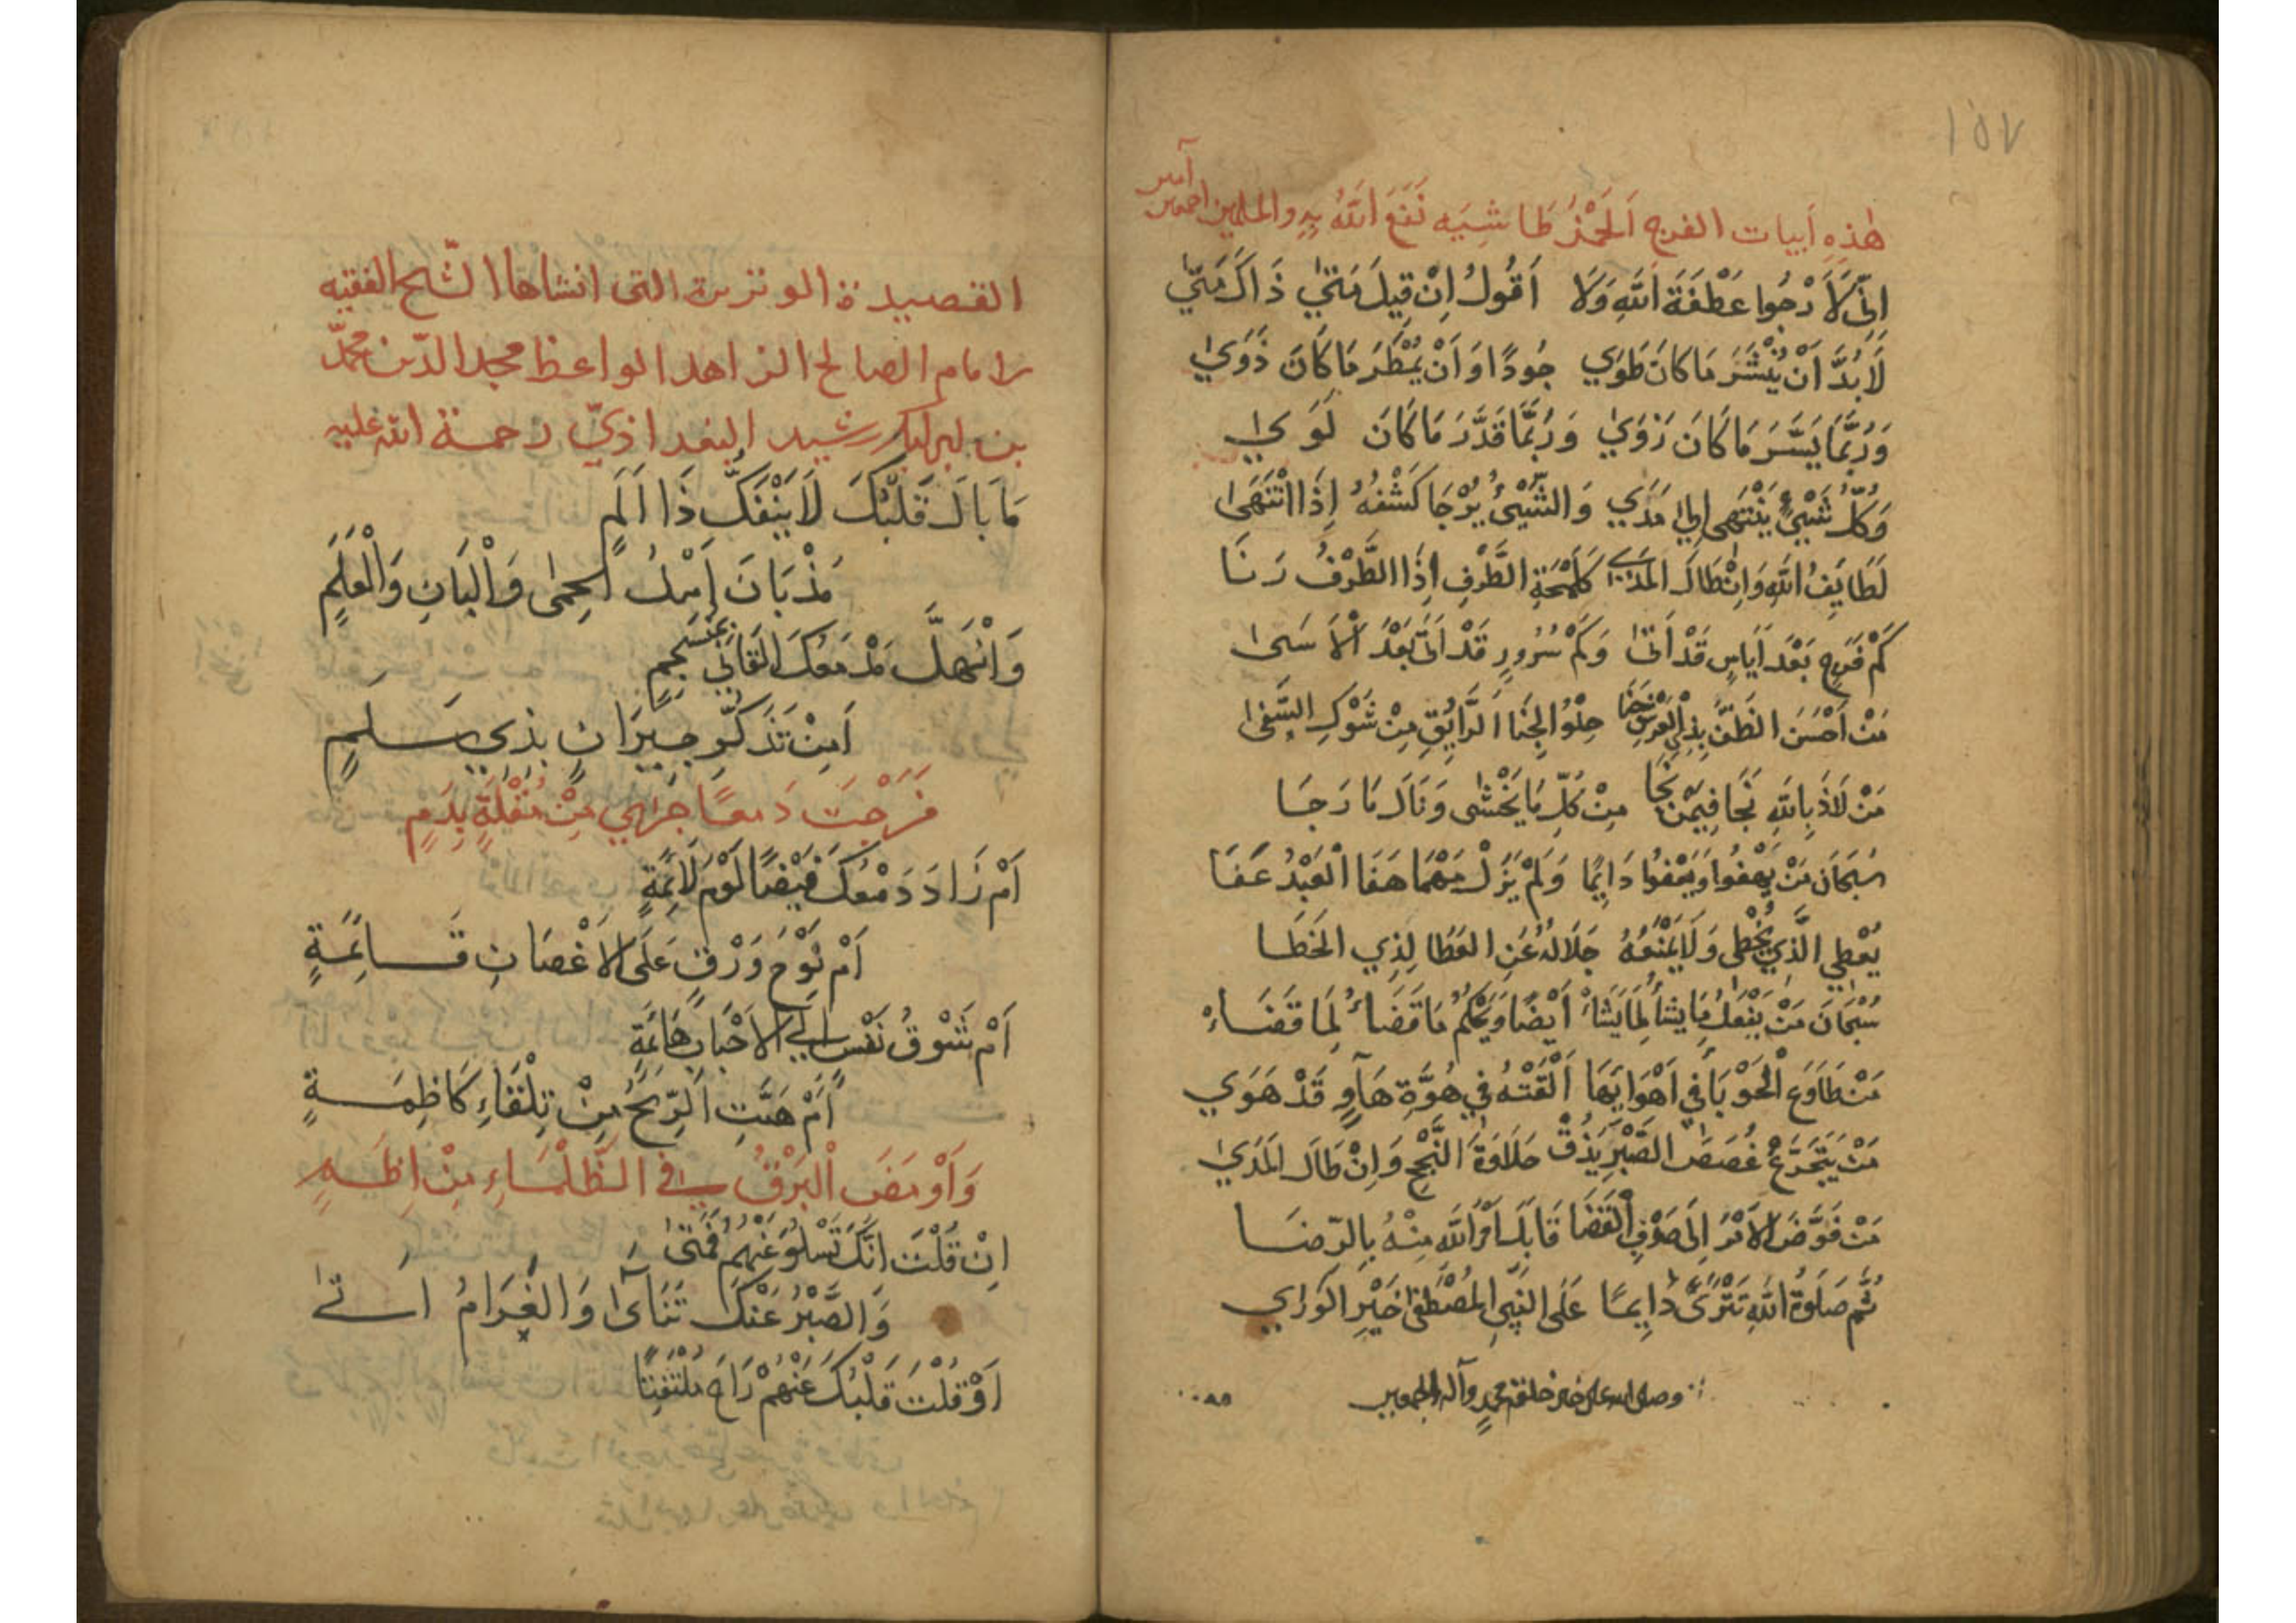 ١٥٧
هٰذِهِ اَبيات الفرج اَلجَمْزَ طَا شِيَه نَفَعَ اللّٰهُ بِهِ والمسلمين اجمعين آمين
اِنِّي لَاَرْجُوا عَطْفَةَ اللّٰهِ وَلَا اَقُولُ اِنْ قِيلَ مَتٰي ذَاكَ مَتٰي
لَابُدَّ اَنْ يُنْشَرَ مَا كَانَ طَوَي جُودًا وَاَنْ يُمْطَرَ مَا كَانَ ذَوَي
وَرُبَّمَا يَسَّرَ مَا كَانَ زَوَي وَرُبَّمَا قَدَّرَ مَا كَانَ لَوَي
وَكُلُّ شَيْءٍ يَنْتَهِى اِلٰي مَدَي وَالشَّيْئُ يُرْجَا كَشْفُهُ اِذَا انْتَهَى
لَطَايِفُ اللّٰهِ وَاِنْ طَالَ الْمَدَي كَلَمْحَةِ الطَّرْفِ اِذَا الطَّرْفُ رَنَا
كَمْ فَرَجٍ بَعْدَ اَيَاسٍ قَدْ اَتٰى وَكَمْ سُرُورٍ قَدْ اَتٰى بَعْدَ اْلاَسَى
مَنْ اَحْسَنَ الظَّنَّ بِذِي الْعَرْشِ جَنَا حِلْوُ الجَنَا الرَّايِقِ مِنْ شَوْكِ السَّفٰا
مَنْ لَاذَ بِاللّٰهِ نَجَا فِيمَنْ نَجَا مِنْ كُلِّ مَا يَخْشٰى وَنَالَ مَا رَجَا
سُبْحَانَ مَنْ يَهْفُوا وَيَعْفُوا دَايِمًا وَلَمْ يَزَلْ مَهْمَا هَفَا الْعَبْدُ عَفَا
يُعْطِي الَّذِي يُخْطِى وَلَا يَمْنَعُهُ جَلَالُهُ عَنِ العَطَا لِذِي الخَطَا
سُبْحَانَ مَنْ يَفْعَلُ مَا يَشَأُ لِمَا يَشَاءُ اَيْضًا وَيَحْكُمُ مَا قَضَاءُ لِمَا قَضَاءْ
مَنْ طَاوَعَ الْحَوْبَا فِي اَهْوَايِهَا اَلْقَتْهُ فِي هُوَّةِ هَاوٍ قَدْ هَوَي
مَنْ يَتَجَرَّعْ غُصَصَ الصَّبْرِ يَذُقْ حَلَاوَةَ النَّجْحِ وَاِنْ طَالَ الْمَدَي
مَنْ فَوَّضَ الاَمْرَ اِلَى صَرْفِ الْقَضَا قَابَلَ اَمْرَ اللّٰهِ مِنْهُ بِالرِّضَا
ثُمَّ صَلَوةُ اللّٰهِ تَتْرَيٰ دَايِمًا عَلَى النَّبِيِّ الْمُصْطَفٰى خَيْرِ الوَرَاي
وصلى الله على خير خلقه محمدٍ وآله اجمعين
القصيدة الوترية التى انشاها الشّيخ الفقيه
الامام الصالح الزاهد الواعظ مجد الدّين محمّد
بن ابى بكر رشيد البغداذيّ رحمة الله عليه
مَا بَالَ قَلْبُكَ لَا يَنْفَكُّ ذَا اَلَمٍ
مُذْ بَانَ اَهْلُ الحِمٰى وَالْبَانِ وَالْعَلَمِ
وَانْهَلَّ مَدْمَعُكَ الْقَانِي بِمُنْسَجِمٍ
اَمِنْ تَذَكُّرِ جِيرَانٍ بِذِي سَلَمِ
مَزَجْتَ دَمعًا جَرٰي مِنْ مُقْلَةٍ بِدَمٍ
اَمْ زَادَ دَمْعُكَ فَيْضًا لَوْمُ لَايِمَةٍ
اَمْ نَوْحُ وَرْقٍ عَلَى الاَغْصَانِ قَايِمَةٍ
اَمْ شَوْقُ نَفْسٍ اِلَي الاَحْبَابِ هَايِمَةٍ
اَمْ هَبَّتِ الرِّيحُ مِنْ تِلْقَاءِ كَاظِمَةٍ
وَاَوْمَضَ الْبَرْقُ فِي الظَّلْمَاءِ مِنْ اِظَمِ
اِنْ قُلْتَ اِنَّكَ تَسْلُوَ عَنْهُمُ فَمَتٰى
وَالصَّبْرُ عَنْكَ تَنَآى وَالْغَرَامُ اَتٰى
اَوْ قُلْتَ قَلْبُكَ عَنْهُمْ رَاحَ مُلْتَفِتًا